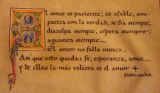 El amor es paciente, es afable,
simpatiza con la verdad, se fía siempre,
disculpa siempre, espera siempre,
aguanta siempre...
El amor no falla nunca.
Así que esto queda: fe, esperanza, amor...
y de ellas la más valiosa es el amor